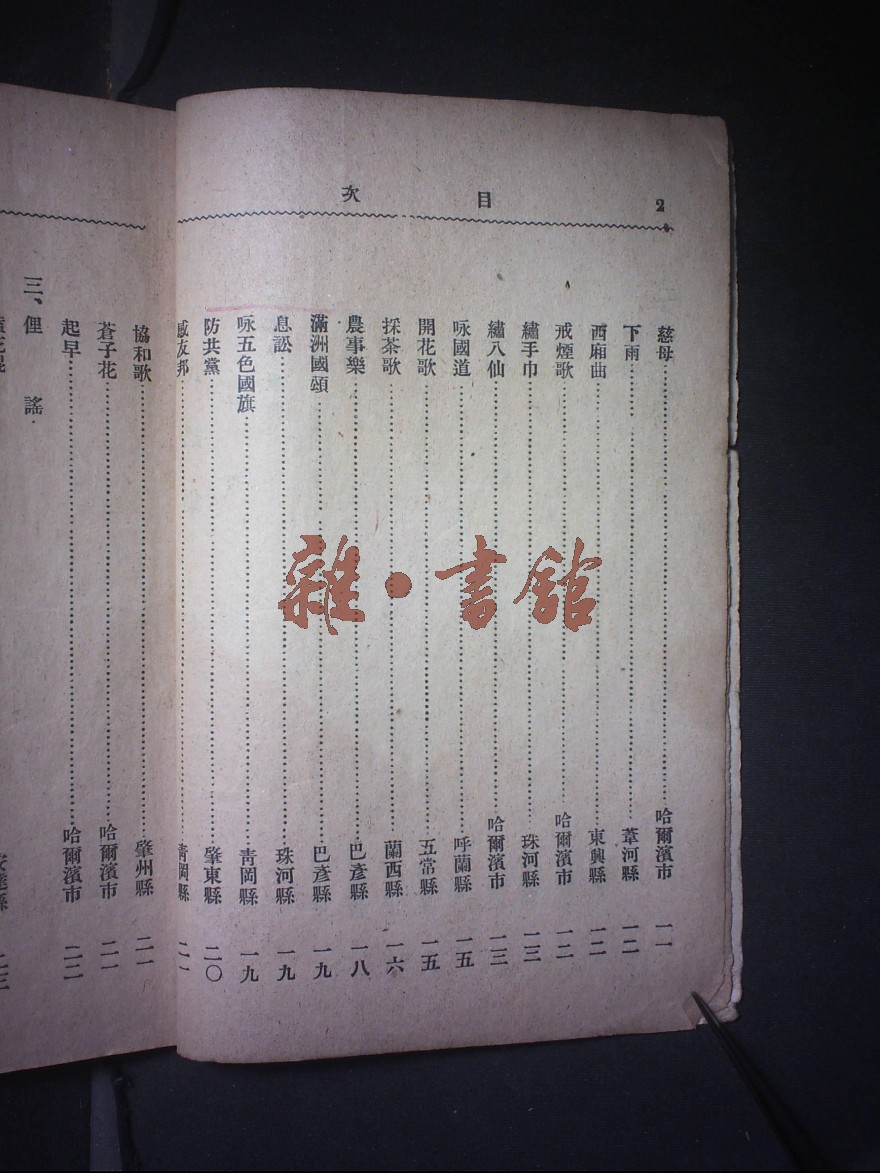 2 目次
慈母 哈爾濱市 一一
下雨 葦河縣 一二
西廂曲 東興縣 一二
戒煙歌 哈爾濱市 一二
繡手巾 珠河縣 一三
繡八仙 哈爾濱市 一三
咏國道 呼蘭縣 一五
開花歌 五常縣 一五
採茶歌 蘭西縣 一六
農事樂 巴彥縣 一八
滿洲國頌 巴彥縣 一九
息訟 珠河縣 一九
咏五色國旗 靑岡縣 一九
防共黨 肇東縣 二〇
感友邦 靑岡縣 二一
協和歌 肇州縣 二一
蒼子花 哈爾濱市 二一
起早 哈爾濱市 二二
三、俚謠
安達縣 二三
雜·書館